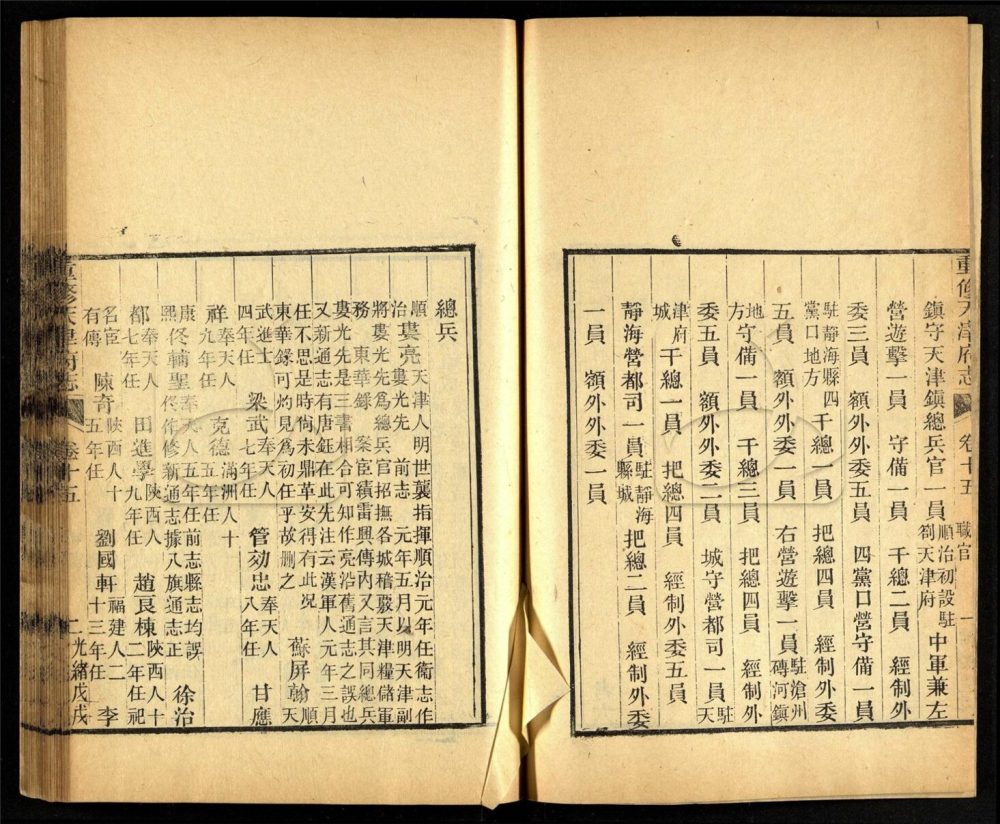 重修天津府志 卷十五 職官 一
鎮守天津鎮總兵官一員 順治初設駐劄天津府 中軍兼左
營遊擊一員 守備一員 千總二員 經制外
委三員 額外外委五員 四黨口營守備一員
駐靜海縣四黨口地方 千總一員 把總四員 經制外委
五員 額外外委一員 右營遊擊一員 駐滄州磚河鎮
地方 守備一員 千總三員 把總四員 經制外
委五員 額外外委二員 城守營都司一員 駐天
津府城 千總一員 把總四員 經制外委五員
靜海營都司一員 駐靜海縣城 把總二員 經制外委
一員 額外外委一員
總兵
順治 婁亮 天津人明世襲指揮順治元年任衞志作婁光先 前志 元年五月以明天津副
將婁光先爲總兵官招撫各城稽覈天津糧儲軍務 東華錄 案臣績雷興傳內又言其同總兵
婁光先是三書相合可知作亮浩舊通志之誤也又新通志有唐鈺在此先注云漢軍人元年三月
任不思是時尙未鼎革安得有此況東華錄可灼見爲初任乎故刪之 蘇屏翰 順天
武進士四年任 梁武 奉天人七年任 管効忠 奉天人八年任 甘應
祥 奉天人九年任 克德 滿洲人十五年任
康熙 佟輔聖 奉天人五年任前志縣志均誤佟作修新通志據八旗通志正 徐治
都 奉天人七年任 田進學 陝西人九年任 趙良棟 陝西人十二年任祀
名臣有傳 陳奇 陝西人十五年任 劉國軒 福建人二十三年任 李
重修天津府志 卷十五 二 光緒戊戌